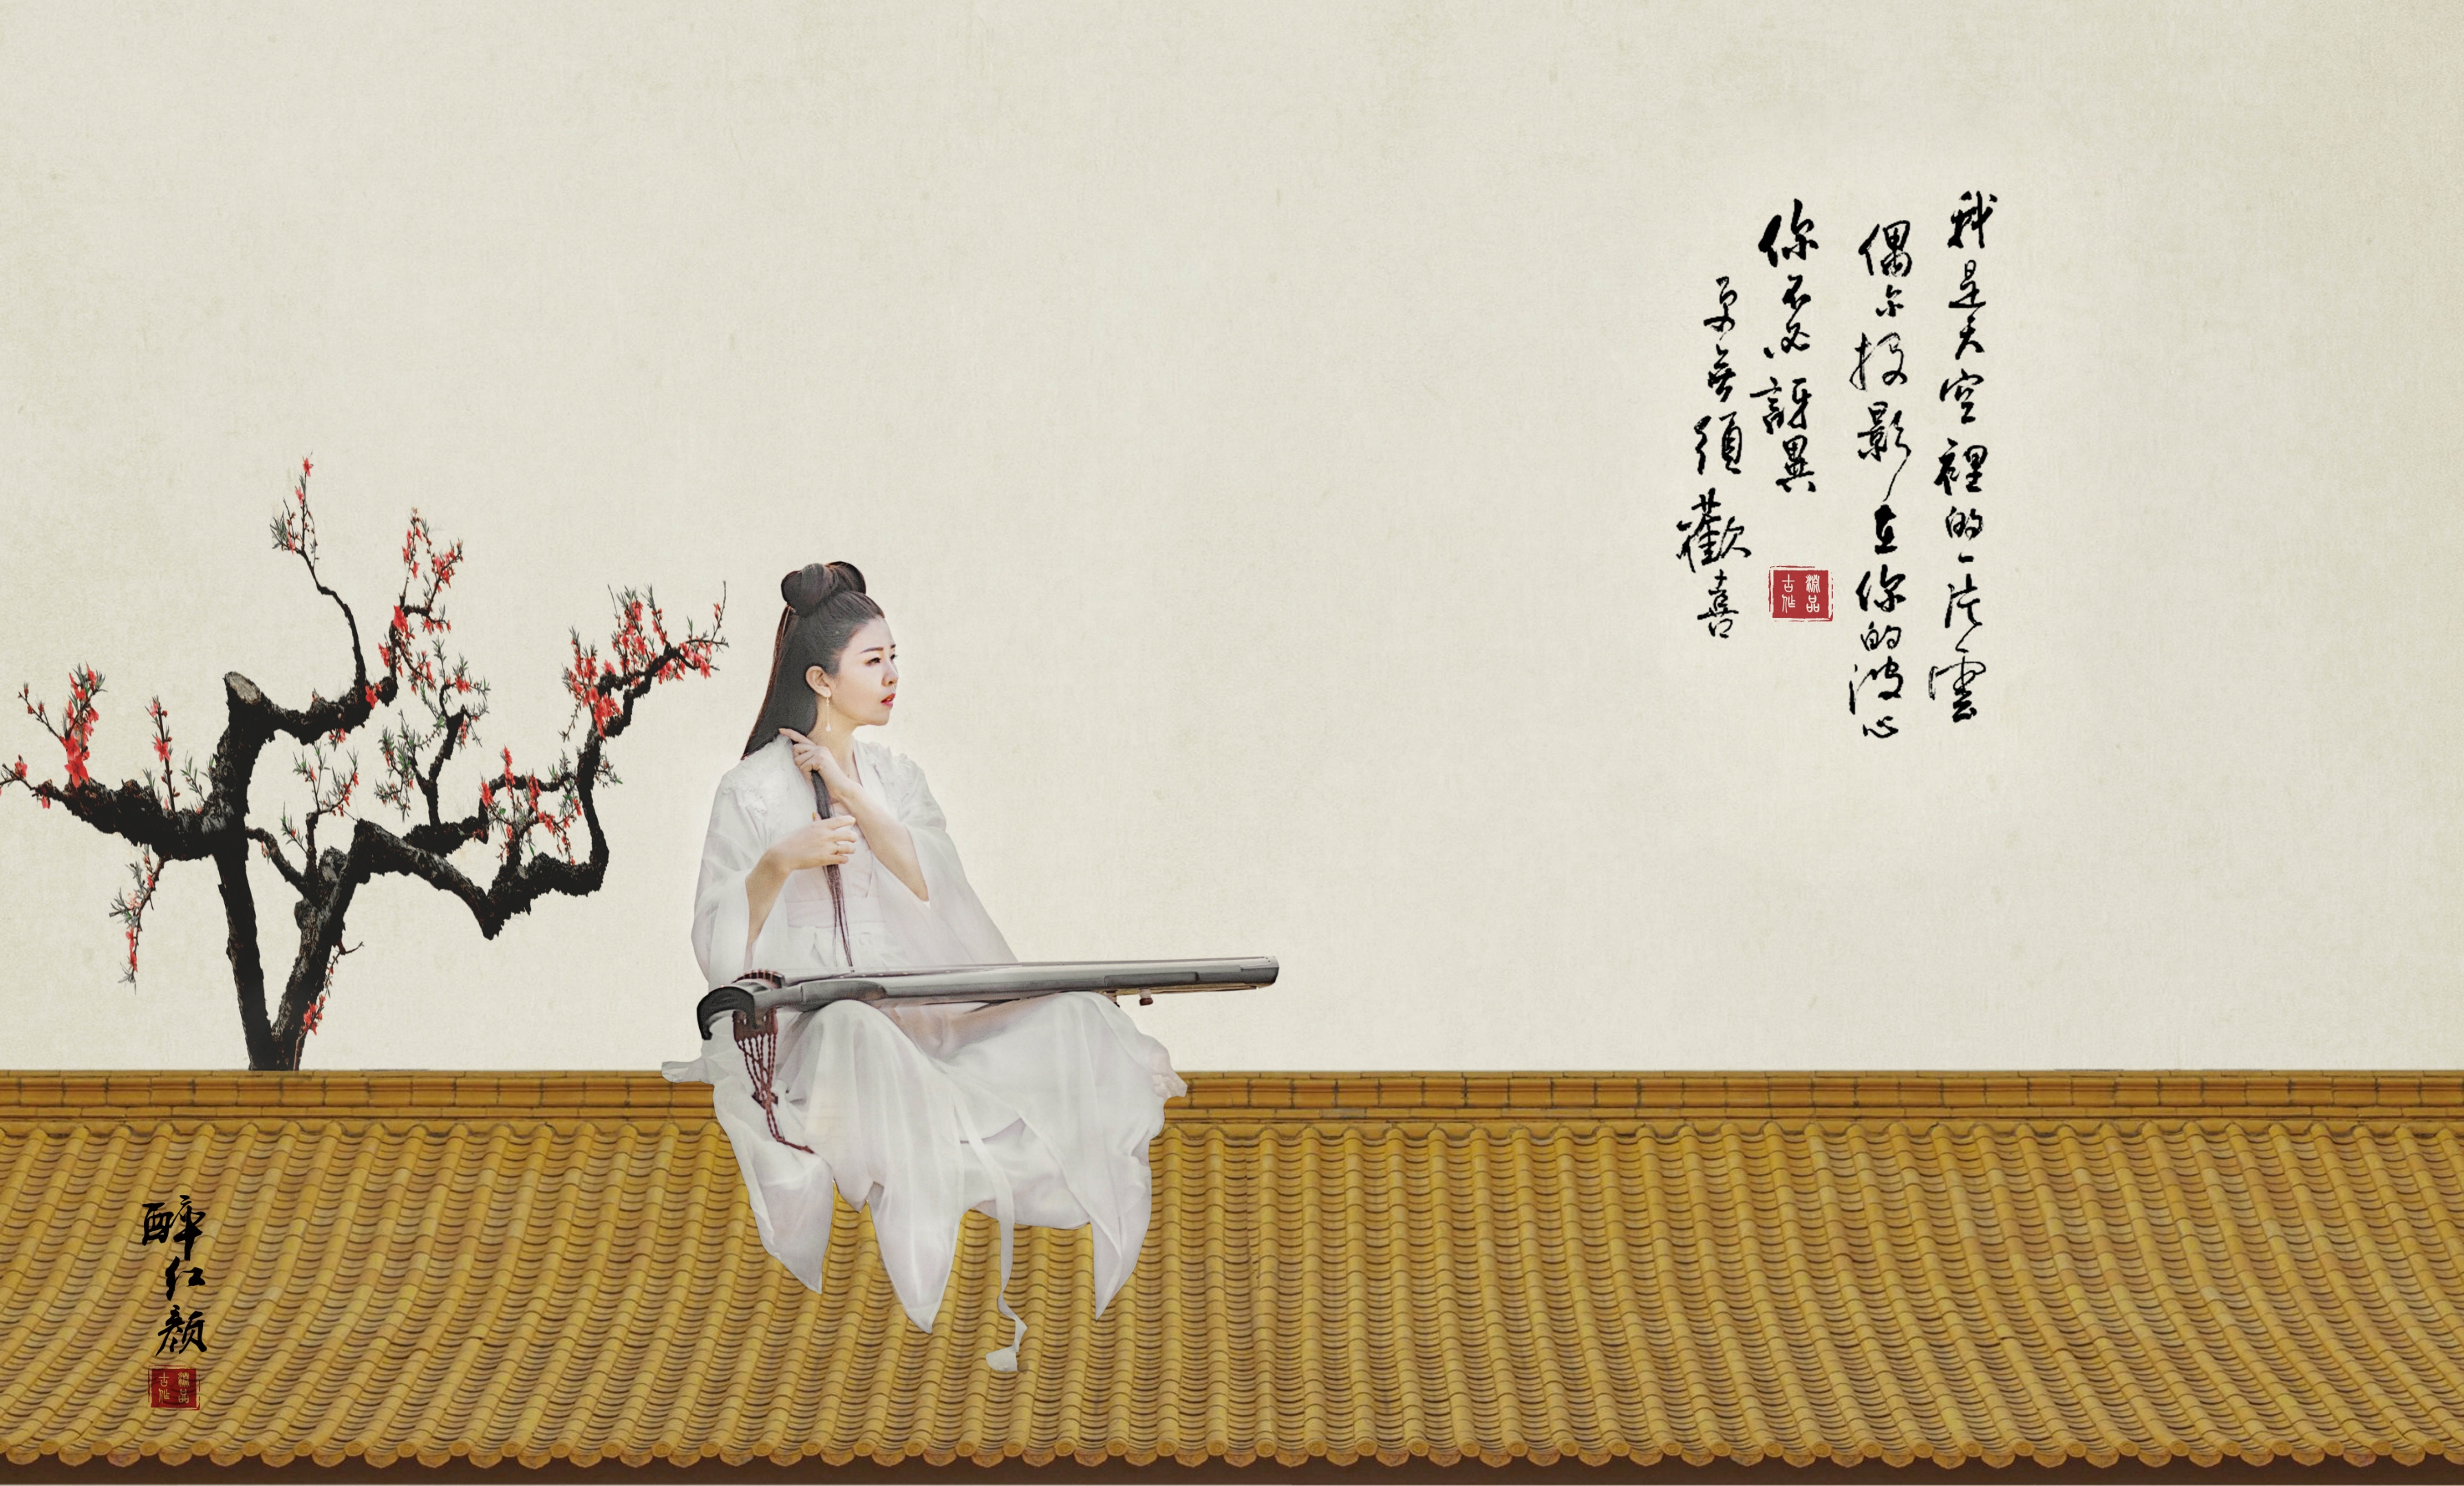 我是天空裡的一片雲
偶尔投影在你的波心
你不必訝異
更無須歡喜
醉红颜